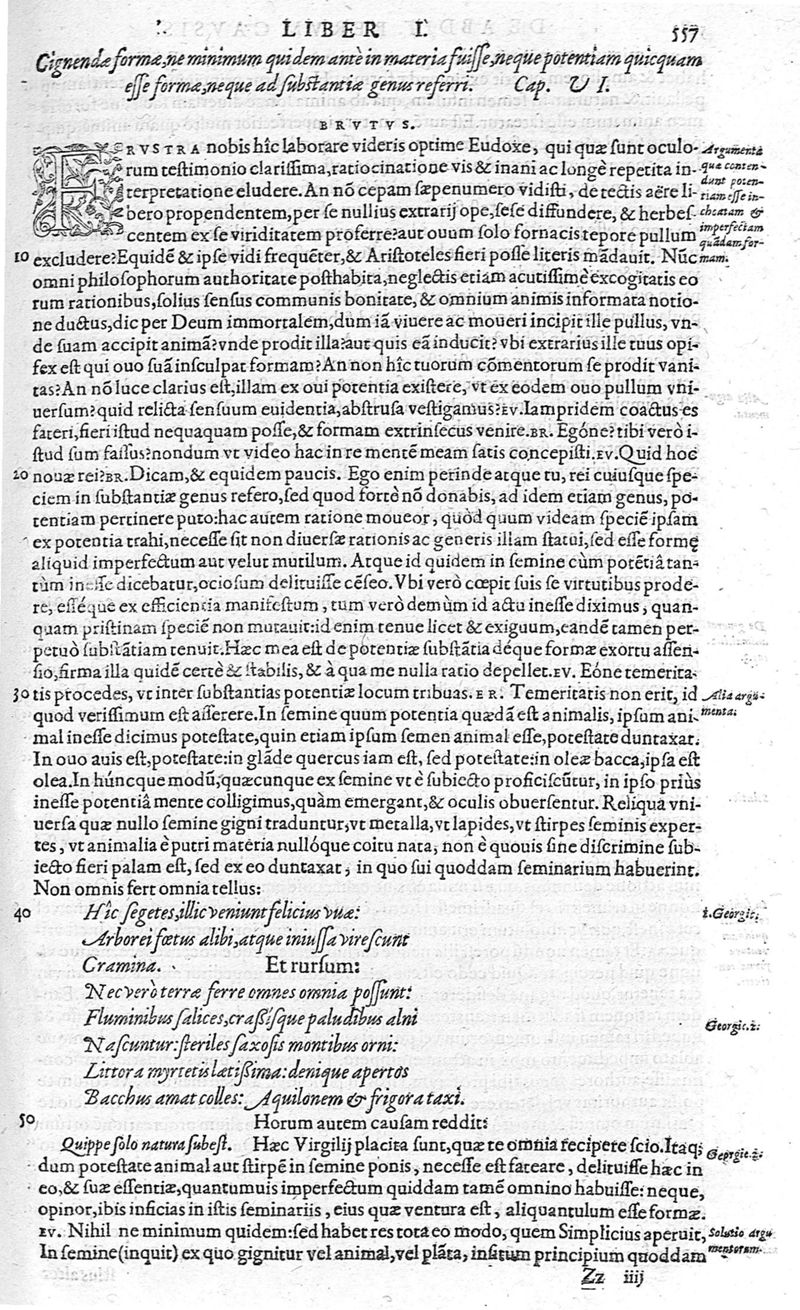 LIBER I. 557
Gignendæ formæ, ne minimum quidem antè in materia fuisse, neque potentiam quicquam
esse formæ, neque ad substantiæ genus referri. Cap. VI.
BRVTVS.
FRVSTRA nobis hîc laborare videris optime Eudoxe, qui quæ sunt oculo-
rum testimonio clarissima, ratiocinatione vis & inani ac longè repetita in-
terpretatione eludere. An nõ cepam sæpenumero vidisti, de tectis aëre li-
bero propendentem, per se nullius extrarij ope, sese diffundere, & herbes-
centem ex se viriditatem proferre? aut ouum solo fornacis tepore pullum
Argumẽta
quæ conten-
dunt poten-
tiam esse in-
choatam &
imperfectam
quãdam for-
mam.
10 excludere? Equidẽ & ipse vidi frequẽter, & Aristoteles fieri posse literis mãdauit. Nũc
omni philosophorum authoritate posthabita, neglectis etiam acutissimè excogitatis eo
rum rationibus, solius sensus communis bonitate, & omnium animis informata notio-
ne ductus, dic per Deum immortalem, dum iã viuere ac moueri incipit ille pullus, vn-
de suam accipit animã? vnde prodit illa? aut quis eã inducit? vbi extrarius ille tuus opi-
fex est qui ouo suã insculpat formam? An non hîc tuorum cõmentorum se prodit vani-
tas? An nõ luce clarius est, illam ex oui potentia existere, vt ex eodem ouo pullum vni-
uersum? quid relicta sensuum euidentia, abstrusa vestigamus? EV. Iampridem coactus es
fateri, fieri istud nequaquam posse, & formam extrinsecus venire. BR. Egóne? tibi verò i-
stud sum fassus? nondum vt video hac in re mentẽ meam satis concepisti. EV. Quid hoc
20 nouæ rei? BR. Dicam, & equidem paucis. Ego enim perinde atque tu, rei cuiusque spe-
ciem in substantiæ genus refero, sed quod fortè nõ donabis, ad idem etiam genus, po-
tentiam pertinere puto: hac autem ratione moueor, quòd quum videam speciẽ ipsam
ex potentia trahi, necesse sit non diuersæ rationis ac generis illam statui, sed esse formę
aliquid imperfectum aut velut mutilum. Atque id quidem in semine cùm potẽtiâ tan-
tùm inesse dicebatur, ociosum delituisse cẽseo. Vbi verò cœpit suis se virtutibus prode-
re, esséque ex efficiencia manifestum, tum verò demùm id actu inesse diximus, quan-
quam pristinam speciẽ non mutauit: id enim tenue licet & exiguum, eandẽ tamen per-
petuò substãtiam tenuit. Hæc mea est de potentiæ substãtia déque formæ exortu assen-
sio, firma illa quidẽ certè & stabilis, & à qua me nulla ratio depellet. EV. Eóne temerita-
30 tis procedes, vt inter substantias potentiæ locum tribuas. BR. Temeritatis non erit, id
quod verissimum est asserere. In semine quum potentia quædã est animalis, ipsum ani-
Alia argu-
menta:
mal inesse dicimus potestate, quin etiam ipsum semen animal esse, potestate duntaxat.
In ouo auis est, potestate: in glãde quercus iam est, sed potestate: in oleæ bacca, ipsa est
olea. In húncque modũ, quæcunque ex semine vt è subiecto proficiscũtur, in ipso priùs
inesse potentiâ mente colligimus, quàm emergant, & oculis obuersentur. Reliqua vni-
uersa quæ nullo semine gigni traduntur, vt metalla, vt lapides, vt stirpes seminis exper-
tes, vt animalia è putri materia nullóque coitu nata, non è quouis sine discrimine sub-
iecto fieri palam est, sed ex eo duntaxat, in quo sui quoddam seminarium habuerint.
Non omnis fert omnia tellus:
40 Hîc segetes, illic veniunt felicius vuæ: 1. Georgic:
Arborei fœtus alibi, atque iniussa virescunt
Gramina. Et rursum:
Nec verò terræ ferre omnes omnia possunt:
Fluminibus salices, crassísque paludibus alni Georgic. 2:
Nascuntur: steriles saxosis montibus orni:
Littora myrtetis lætissima: denique apertos
Bacchus amat colles: Aquilonem & frigora taxi.
50 Horum autem causam reddit:
Quippe solo natura subest. Hæc Virgilij placita sunt, quæ te omnia recipere scio. Itaq; Georgic. 2:
dum potestate animal aut stirpẽ in semine ponis, necesse est fateare, delituisse hæc in
eo, & suæ essentiæ, quantumuis imperfectum quiddam tamẽ omnino habuisse: neque,
opinor, ibis inficias in istis seminariis, eius quæ ventura est, aliquantulum esse formæ.
EV. Nihil ne minimum quidem: sed habet res tota eo modo, quem Simplicius aperuit, Solutio argu
In semine (inquit) ex quo gignitur vel animal, vel plãta, insitum principium quoddam mentorum.
Zz iiij